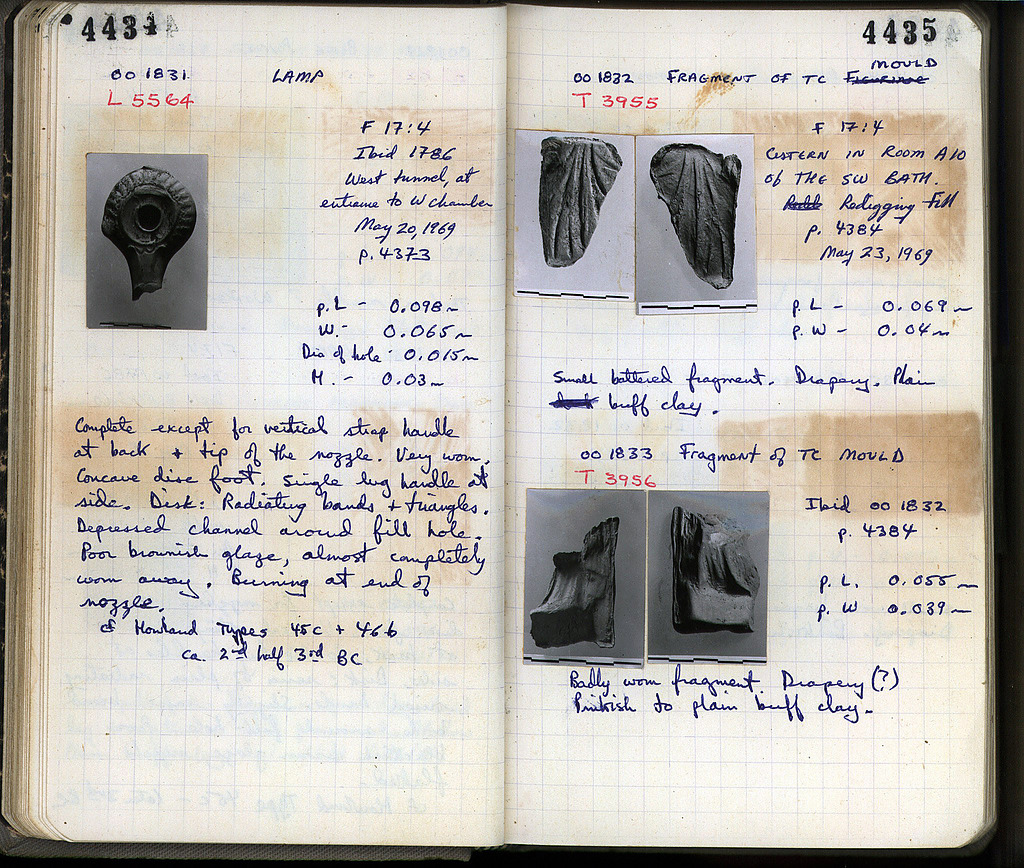 4434
OO 1831 LAMP
L 5564
F 17:4
Ibid 1786
West tunnel, at
entrance to W chamber
May 20, 1969
p. 4373
p. L - 0.098 m
W. - 0.065 m
Dia of hole - 0.015 m
H. - 0.03 m
Complete except for vertical strap handle
at back + tip of the nozzle. Very worn.
Concave disc foot. Single lug handle at
side. Disk: Radiating bands + triangles.
Depressed channel around fill hole.
Poor brownish glaze, almost completely
worn away. Burning at end of
nozzle.
cf Howland Types 45c + 46b
ca. 2nd half 3rd BC
4435
OO 1832 FRAGMENT OF TC Figurine MOULD
T 3955
F 17:4
CISTERN IN ROOM A10
Of THE SW BATH.
Redigging Fill
p. 4384
May 23, 1969
p. L - 0.069 m
p. W - 0.04 m
Small battered fragment. Drapery. Plain
buff clay.
OO 1833 Fragment of TC MOULD
T 3956
Ibid OO 1832
p. 4384
p. L. 0.055 m
p. W 0.039 m
Badly worn fragment. Drapery (?)
Pinkish to plain buff clay.